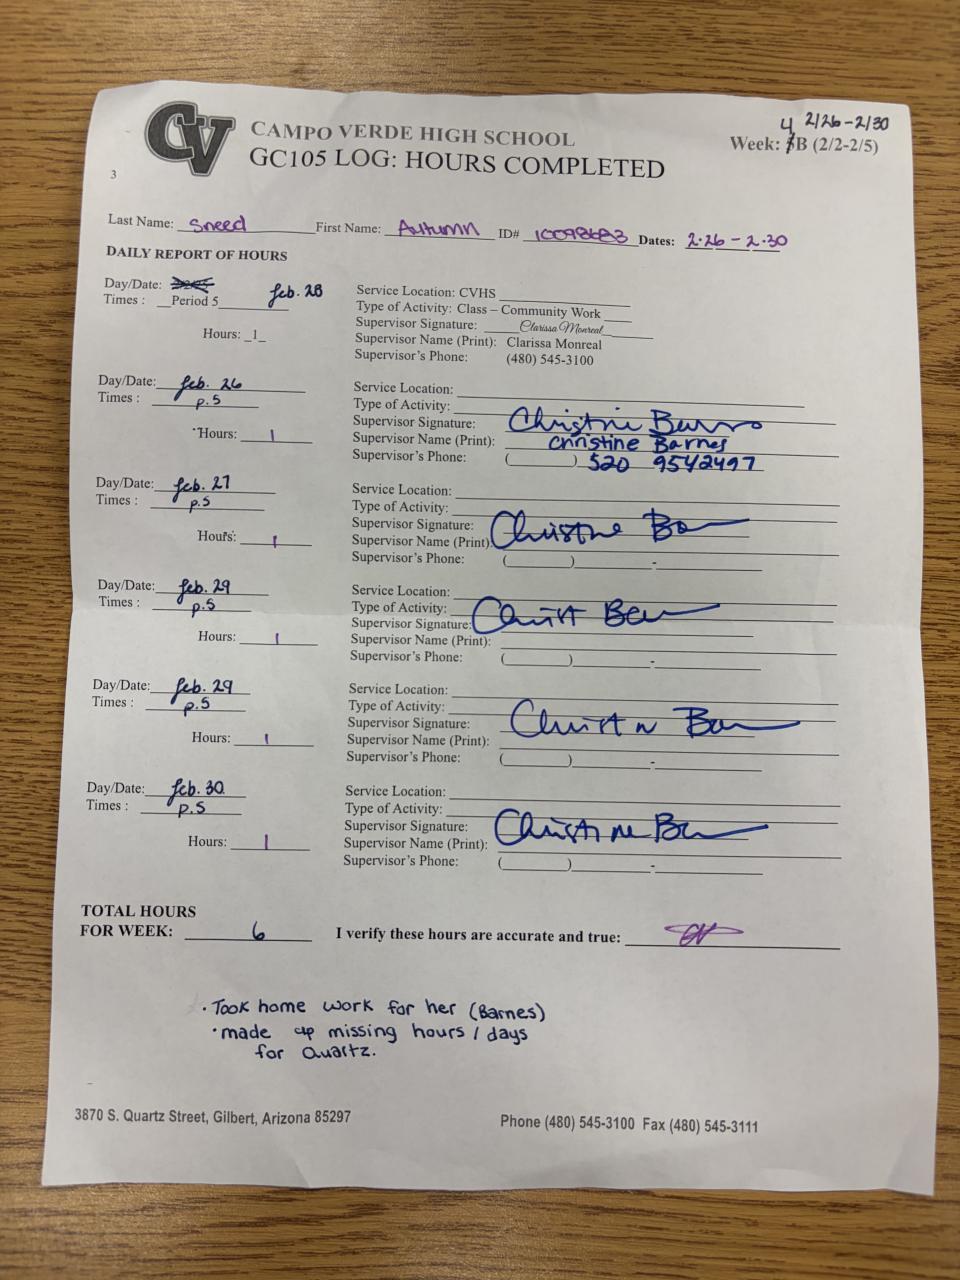 CV
CAMPO VERDE HIGH SCHOOL
GC105 LOG: HOURS COMPLETED
4 2/26-2/30
Week: B (2/2-2/5)
3
Last Name: Sneed First Name: Autumn ID# 10098683 Dates: 2.26 - 2.30
DAILY REPORT OF HOURS
Day/Date: feb. 28
Times : Period 5
Hours: _1_
Service Location: CVHS
Type of Activity: Class – Community Work
Supervisor Signature: Clarissa Monreal
Supervisor Name (Print): Clarissa Monreal
Supervisor's Phone: (480) 545-3100
Day/Date: feb. 26
Times : p.5
Hours: 1
Service Location:
Type of Activity:
Supervisor Signature: Christine Barnes
Supervisor Name (Print): Christine Barnes
Supervisor's Phone: ( ) 520 954 2497
Day/Date: feb. 27
Times : p.5
Hours: 1
Service Location:
Type of Activity:
Supervisor Signature: Christine Ba
Supervisor Name (Print):
Supervisor's Phone: ( ) -
Day/Date: feb. 29
Times : p.5
Hours: 1
Service Location:
Type of Activity:
Supervisor Signature:
Supervisor Name (Print):
Supervisor's Phone: ( ) -
Day/Date: feb. 29
Times : p.5
Hours: 1
Service Location:
Type of Activity:
Supervisor Signature:
Supervisor Name (Print):
Supervisor's Phone: ( ) -
Day/Date: feb. 30
Times : p.5
Hours: 1
Service Location:
Type of Activity:
Supervisor Signature: Christine Ba
Supervisor Name (Print):
Supervisor's Phone: ( ) -
TOTAL HOURS
FOR WEEK: 6 I verify these hours are accurate and true:
• Took home work for her (Barnes)
• made up missing hours / days
for Quartz.
3870 S. Quartz Street, Gilbert, Arizona 85297
Phone (480) 545-3100 Fax (480) 545-3111